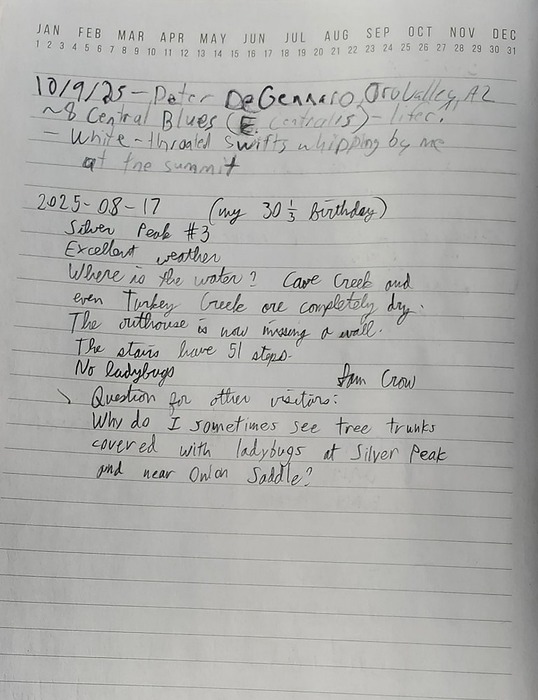 JAN FEB MAR APR MAY JUN JUL AUG SEP OCT NOV DEC
1 2 3 4 5 6 7 8 9 10 11 12 13 14 15 16 17 18 19 20 21 22 23 24 25 26 27 28 29 30 31
10/9/25 - Peter DeGennaro, Oro Valley, AZ
~8 Central Blues (E. centralis) - lifer!
- White-throated swifts whipping by me
at the summit
2025-08-17 (my 30 1/3 birthday)
Silver Peak #3
Excellent weather
Where is the water? Cave Creek and
even Turkey Creek are completely dry.
The outhouse is now missing a wall.
The stairs have 51 steps.
No ladybugs Sam Crow
Question for other visitors:
Why do I sometimes see tree trunks
covered with ladybugs at Silver Peak
and near Onion Saddle?